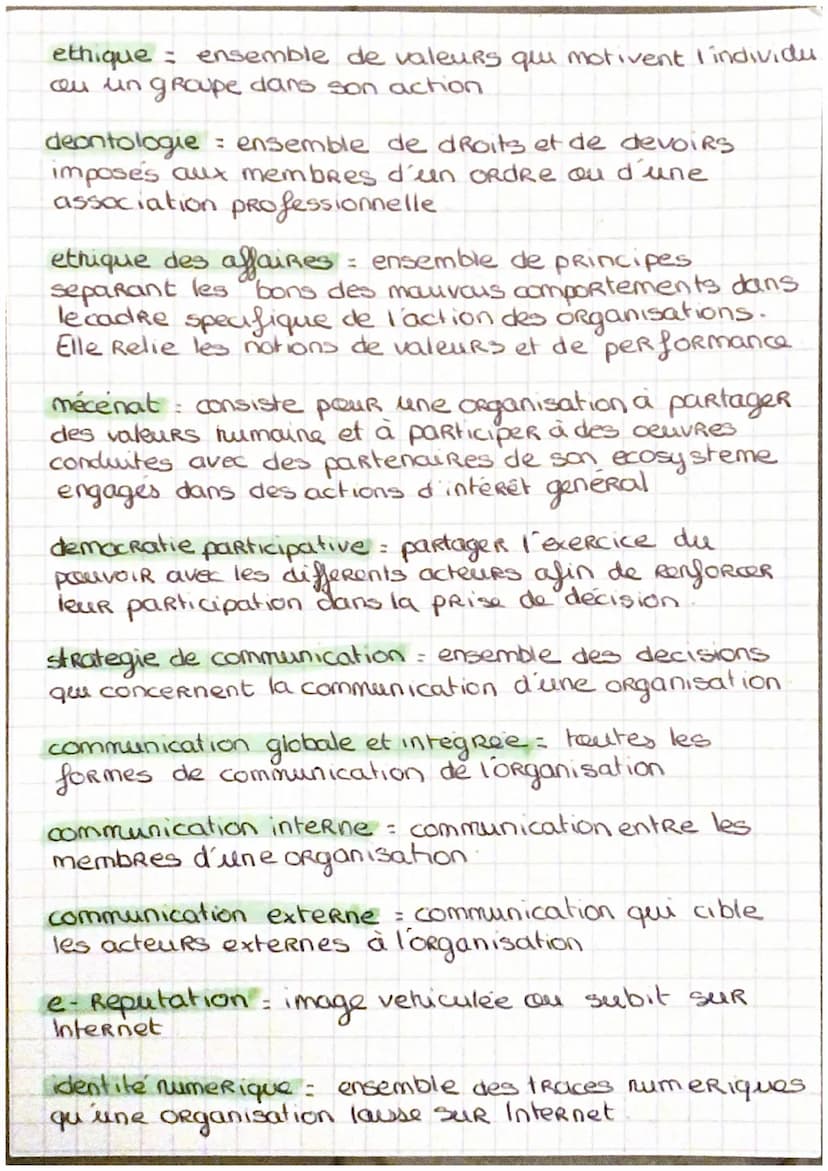 ethique = ensemble de valeurs qui motivent l'individu
ou un groupe dans son action
deontologie = ensemble de droits et de devoirs
imposés aux membres d'un ordre ou d'une
association professionnelle
ethique des affaires = ensemble de principes
separant les bons des mauvais comportements dans
le cadre specifique de l'action des organisations.
Elle relie les notions de valeurs et de performance
mécénat = consiste pour une organisation à partager
des valeurs humaine et à participer à des oeuvres
conduites avec des partenaires de son ecosysteme
engagés dans des actions d'intérêt général
democratie participative = partager l'exercice du
pouvoir avec les differents acteurs afin de renforcer
leur participation dans la prise de décision.
strategie de communication = ensemble des decisions
qui concernent la communication d'une organisation
communication globale et integrée = toutes les
formes de communication de l'organisation
communication interne = communication entre les
membres d'une organisation.
communication externe = communication qui cible
les acteurs externes à l'organisation
e-Reputation = image vehiculée ou subit sur
Internet
identité numerique = ensemble des traces numeriques
qu'une organisation laisse sur Internet.